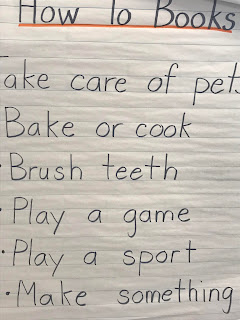 How To Books
Take care of pets
Bake or cook
• Brush teeth
• Play a game
• Play a sport
• Make something